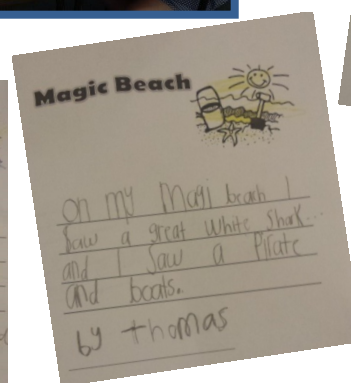 Magic Beach
On my Magi beach I
saw a great white Shark
and I Saw a Pirate
and boats.
by thomas